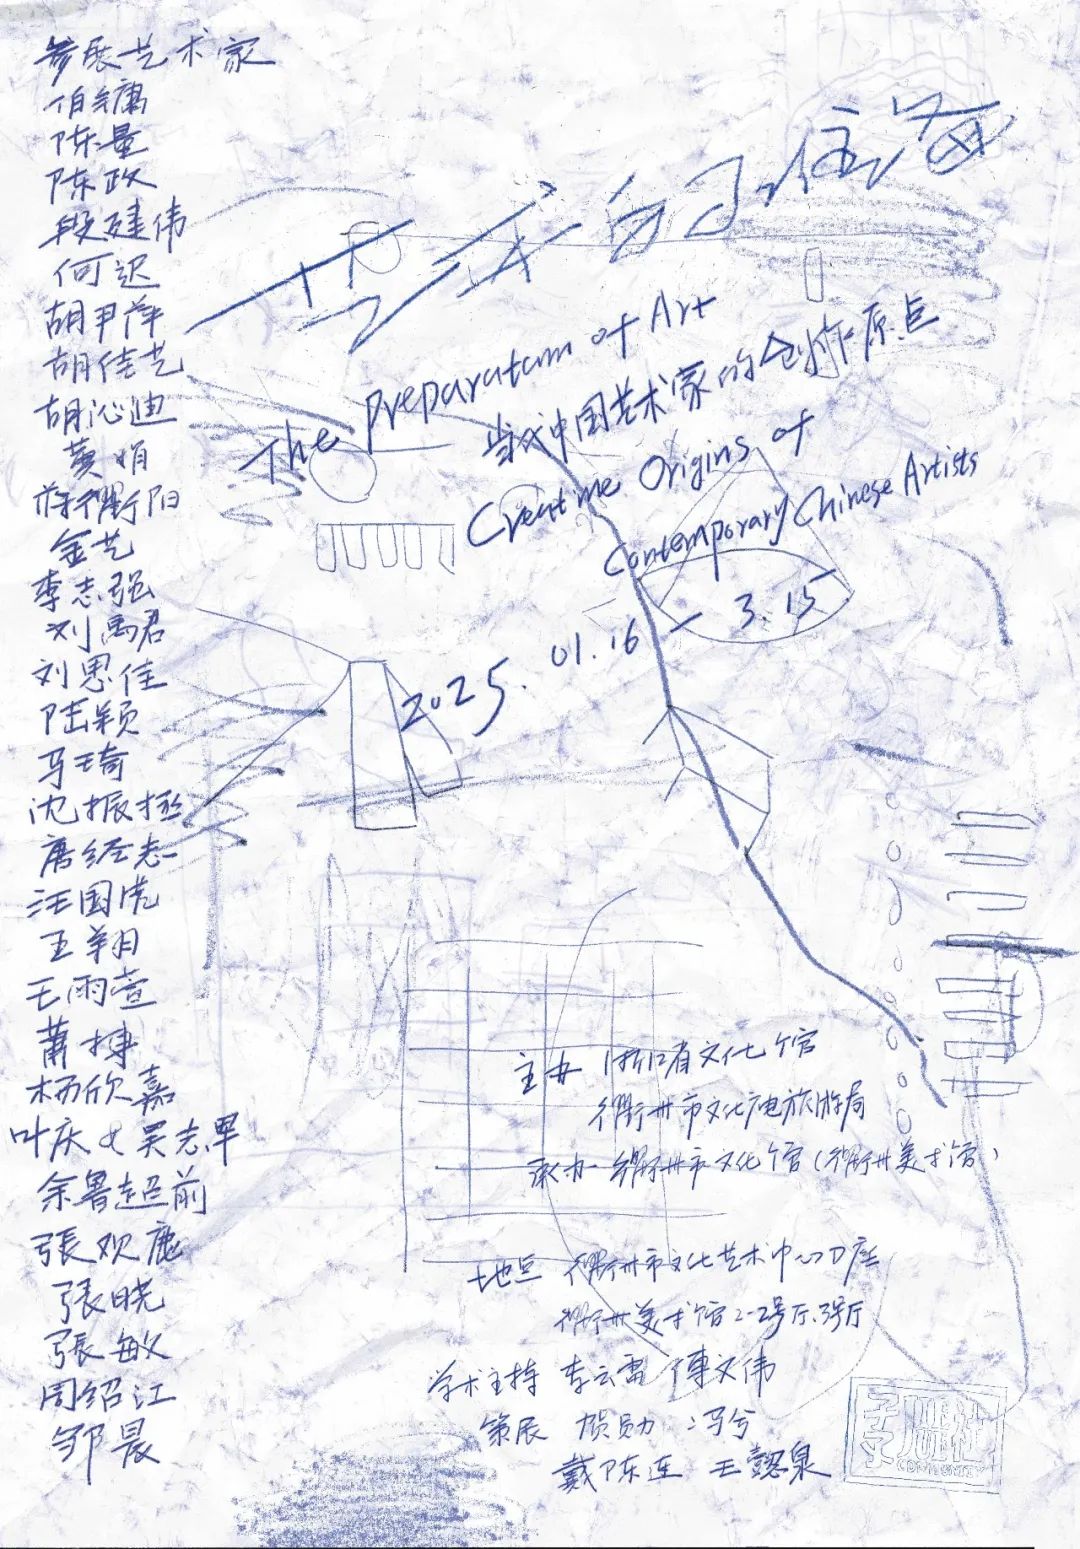 参展艺术家
陈量
陈政
段建伟
何迟
胡尹萍
胡佳艺
胡沁迪
黄娟
蒋衢阳
金艺
李志强
刘禹君
刘思佳
陆颖
马琦
沈振拯
唐经志
汪国虎
王翔
王雨萱
萧搏
杨欣嘉
叶庆 & 吴志军
余鲁超前
張欢鹿
張晓
張敏
周绍江
邹晨
艺术的预备
The Preparatum of Art
当代中国艺术家的创作原点
Creatme Origins of
Contemporary Chinese Artists
2025. 01.16 - 3.15
主办 浙江省文化馆
衢州市文化广电旅游局
承办 衢州市文化馆(衢州美术馆)
地点 衢州市文化艺术中心D座
衢州美术馆2-2号厅、3号厅
学术主持 李云雷 傅文伟
策展 贺勋 冯兮
戴陈连 王懿泉
COMMUNITY